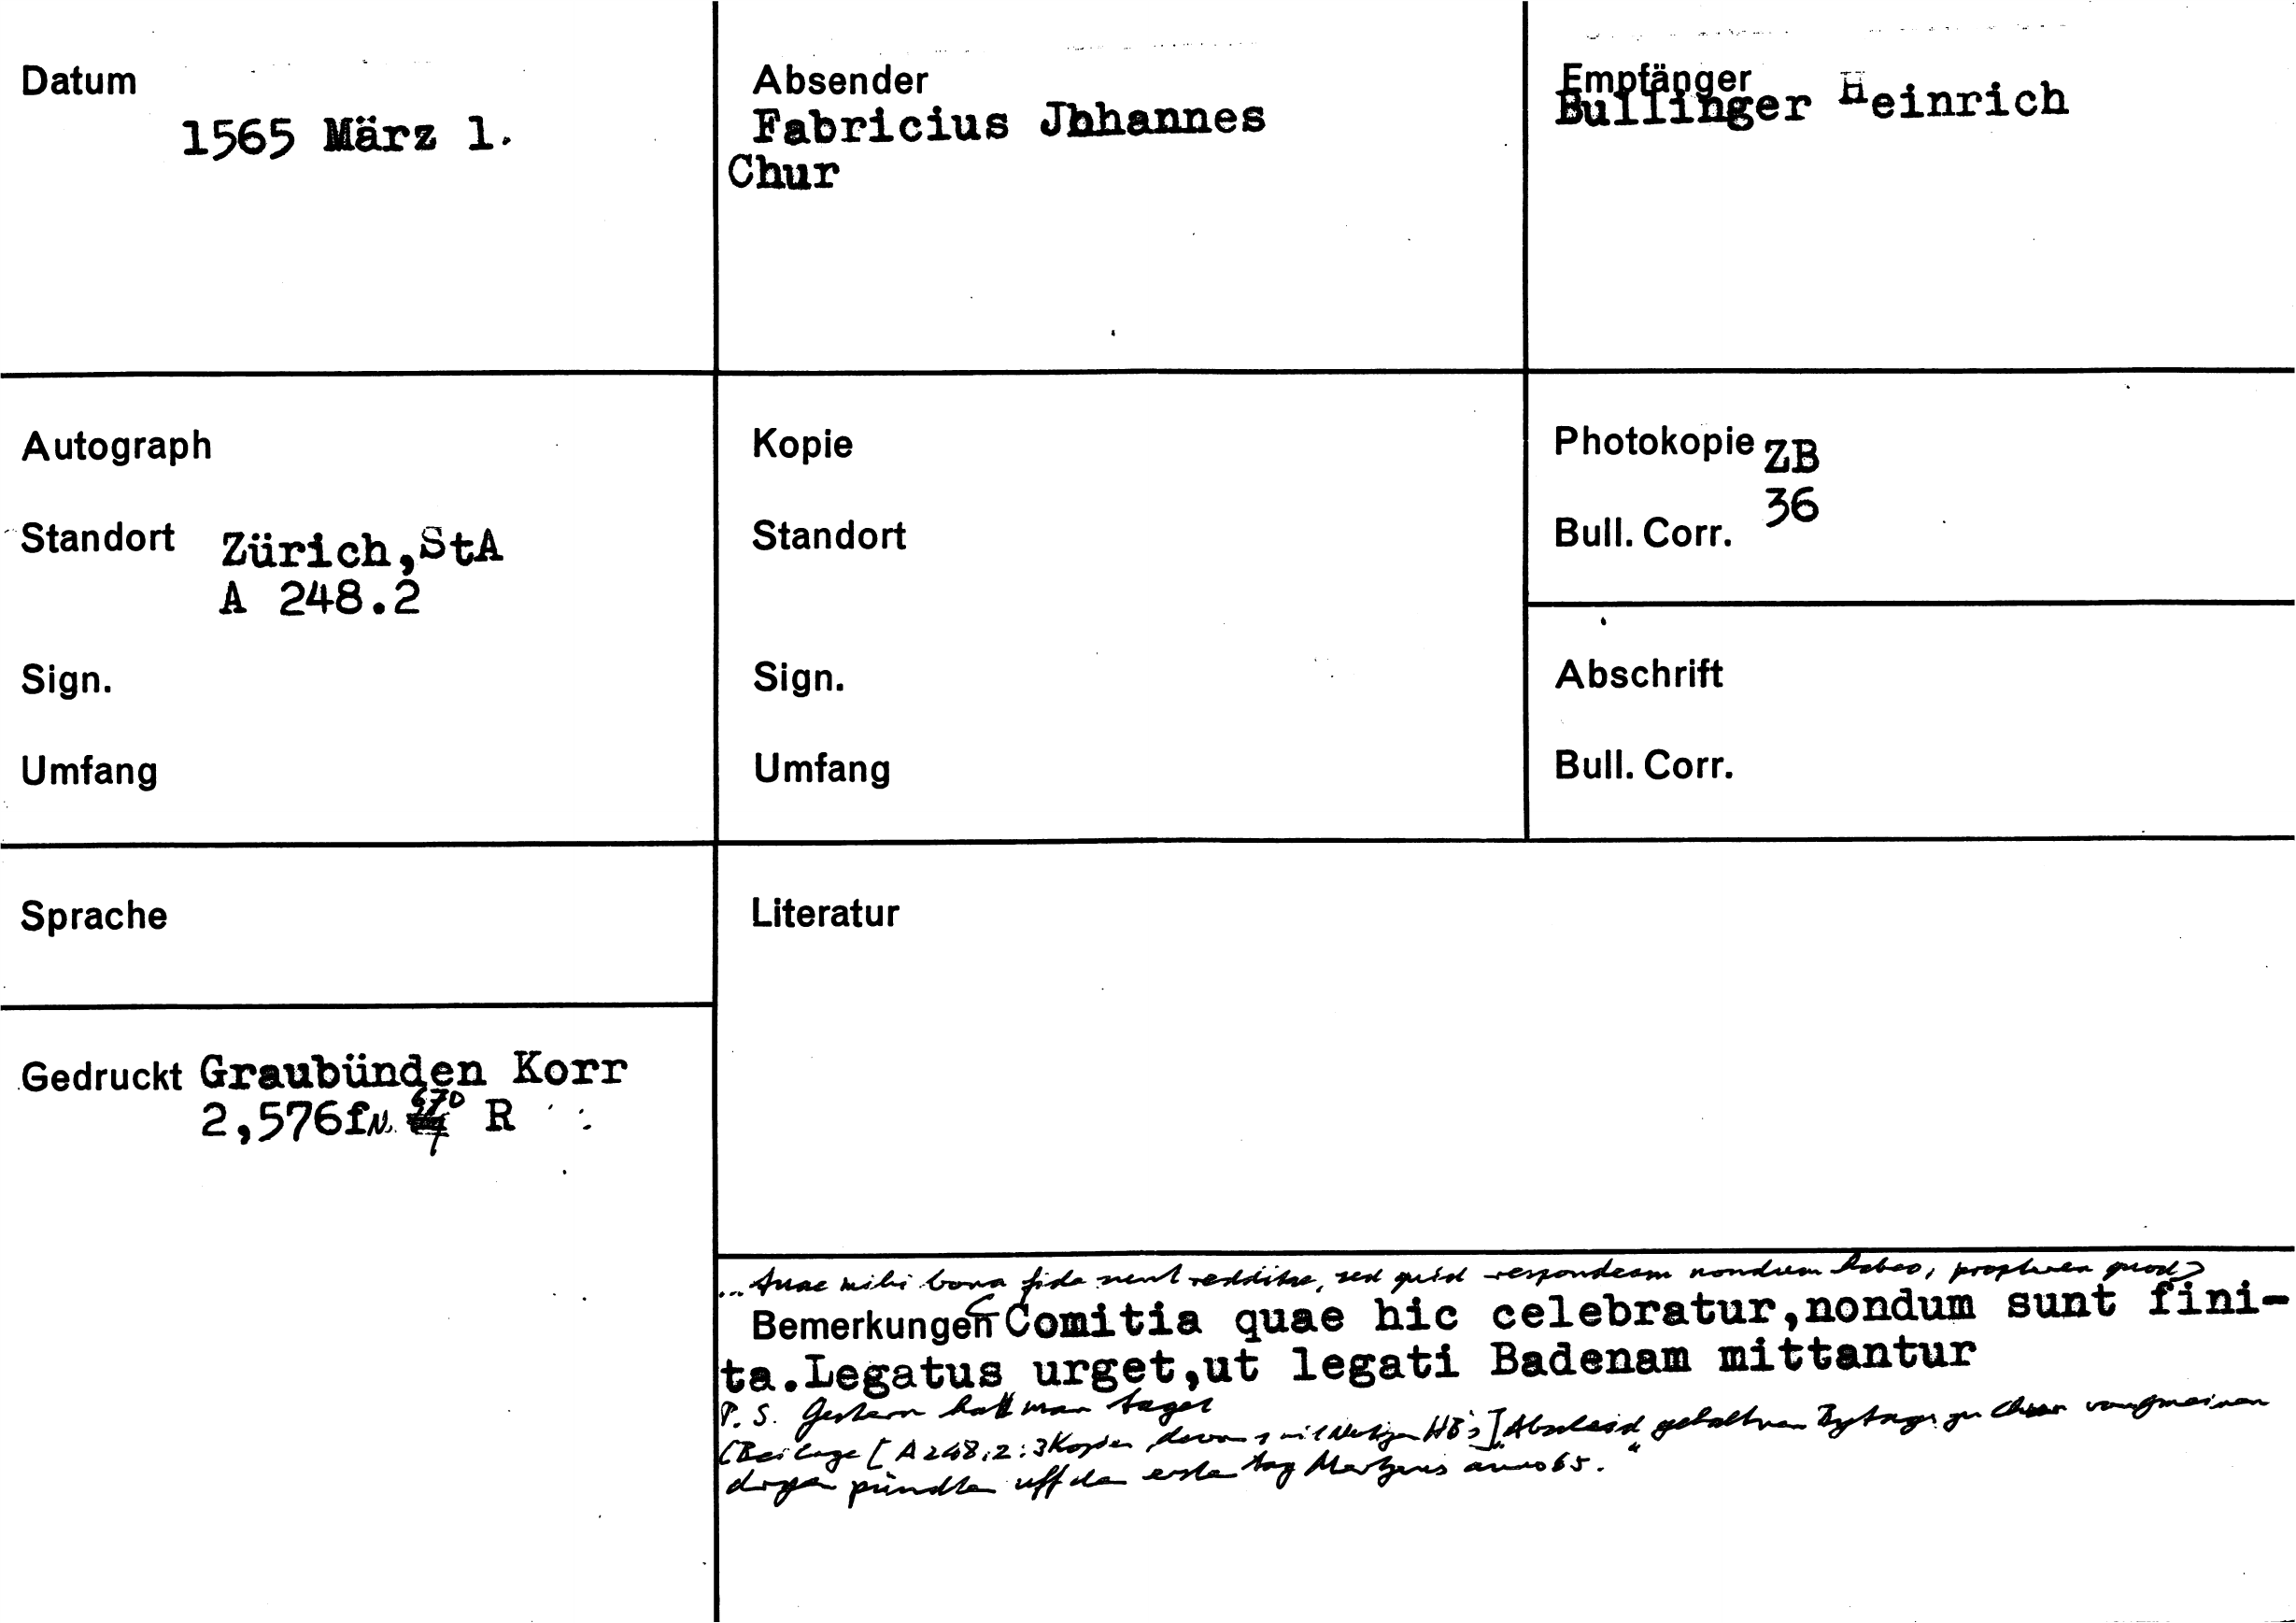 Datum
1565 März 1.
Absender
Fabricius Jhhannes
Chur
Empfänger
Bullinger Heinrich
Autograph
Standort Zürich,StA
A 248.2
Sign.
Umfang
Kopie
Standort
Sign.
Umfang
Photokopie ZB
Bull. Corr. 36
Abschrift
Bull. Corr.
Sprache
Gedruckt Graubünden Korr
2,576f N. 670 R
Literatur
... tuae mihi bona fide sunt redditae, sed quid respondeam nondum habeo, propterea quod
Bemerkungen Comitia quae hic celebratur,nondum sunt fini-
ta.Legatus urget,ut legati Badenam mittantur
P. S. Gestern hatt man taget
(Beilage [A 248.2: 3 Kopien, davon 1 mit Notizen HB's] "Abscheid gehaltnen Bytags zu Chur von gmeinen
dryen pündten uff den ersten tag Mertzens anno 65."